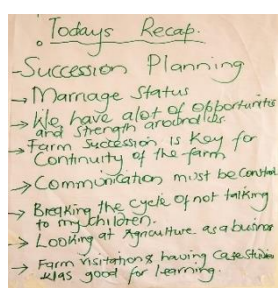 Todays Recap.
-Succession Planning
→ Marriage Status
→ We have alot of opportunities
and strength around us.
→ Farm Succession is Key for
Continuity of the farm
→ Communication must be Constant
→ Breaking the cycle of not talking
to my children.
→ Looking at Agriculture as a business
→ Farm visitation & having Case studies
was good for learning.